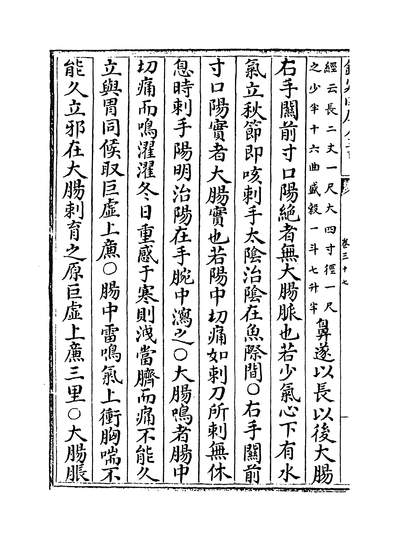 卷三十七
經云長二丈一尺大四寸徑一尺
之少半十六曲盛穀一斗七升半
鼻遂以長以後大腸
右手關前寸口陽絶者無大腸脈也若少氣心下有水
氣立秋節即咳刺手太陰治陰在魚際間○右手關前
寸口陽實者大腸實也若陽中切痛如刺刀所刺無休
息時刺手陽明治陽在手腕中瀉之○大腸鳴者腸中
切痛而鳴濯濯冬日重感于寒則洩當臍而痛不能久
立與胃同候取巨虚上廉○腸中雷鳴氣上衝胸喘不
能久立邪在大腸刺育之原巨虚上廉三里○大腸脹